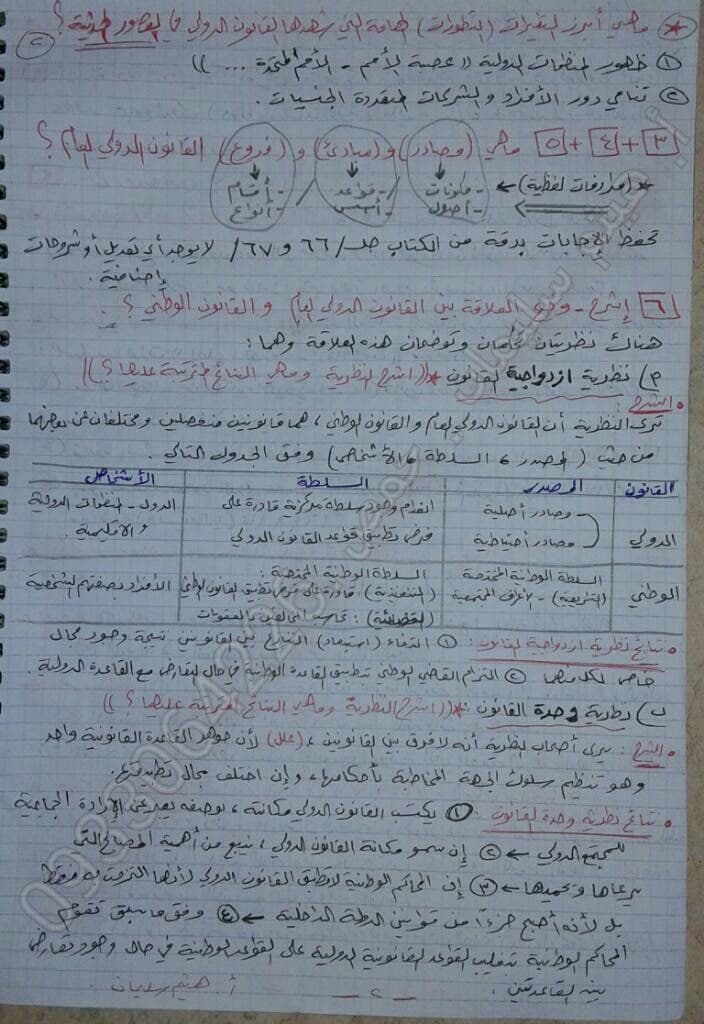 * ماهي أبرز المتغيرات (التطورات) الهامة التي شهدها القانون الدولي في العصور الحديثة؟
٢
① ظهور المنظمات الدولية ((عصبة الأمم - الأمم المتحدة ...))
② تنامي دور الأفراد والشركات متعددة الجنسيات.
٣ + ٤ + ٥ ماهي (مصادر) و (مبادئ) و (فروع) القانون الدولي العام؟
* (مرادفات لفظية) ← - مكونات / - قواعد / - أقسام
- أصول - أسس - أنواع
تحفظ الإجابات بدقة من الكتاب صـ/٦٦ و ٦٧/ لا يوجد أي تعديل أو شروحات
إضافية.
٦ إشرح - وضح العلاقة بين القانون الدولي العام و القانون الوطني؟.
هناك نظريتان تحكمان وتوضحان هذه العلاقة وهما:
أ) نظرية ازدواجية القانون * ((اشرح النظرية وماهي النتائج المترتبة عليها؟))
• الشرح:
ترى النظرية أن القانون الدولي العام والقانون الوطني، هما قانونين منفصلين ومختلفان عن بعضهما
من حيث (المصدر، السلطة، الأشخاص) وفق الجدول التالي.
القانون المصدر السلطة الأشخاص
الدولي - مصادر أصلية - مصادر احتياطية انعدام وجود سلطة مركزية قادرة على فرض تطبيق قواعد القانون الدولي الدول - المنظمات الدولية والاقليمية.
الوطني السلطة الوطنية المختصة (التشريعية) - الأعراف المجتمعية السلطة الوطنية المختصة: (التنفيذية): قادرة على فرض تطبيق القانون الوطني (القضائية): تحاسب المخالفين بالعقوبات الأفراد بصفتهم الشخصية
• نتائج نظرية ازدواجية القانون: ① انتفاء (استبعاد) التنازع بين القانونين نتيجة وجود مجال
خاص لكل منهما ② التزام القاضي الوطني بتطبيق القاعدة الوطنية في حال تعارض مع القاعدة الدولية.
ب) نظرية وحدة القانون * ((اشرح النظرية وماهي النتائج المترتبة عليها؟))
• الشرح: يرى أصحاب النظرية أنه لا فرق بين القانونين، (علل) لأن جوهر القاعدة القانونية واحد
وهو تنظيم سلوك الجهة المخاطبة بأحكامها، وإن اختلف مجال تطبيقها.
• نتائج نظرية وحدة القانون: ① يكتسب القانون الدولي مكانته، بوصفه يعبر عن الإرادة الجماعية
للمجتمع الدولي ← ② إن سمو مكانة القانون الدولي، ينبع من أهمية المصالح التي
يرعاها ويحميها ← ③ إن المحاكم الوطنية لا تطبق القانون الدولي لأنها التزمت به فقط
بل لأنه أصبح جزءاً من قوانين الدولة الداخلية ← ④ وفق ما سبق تقوم
المحاكم الوطنية بتغليب القواعد القانونية الدولية على القواعد الوطنية في حال وجود تعارض
بين القاعدتين.
- ٢ -
أ. هيثم سليمان